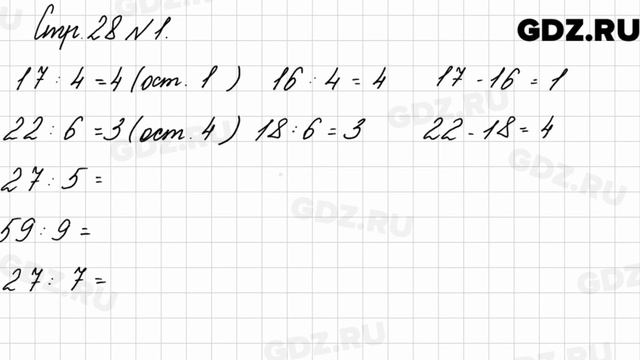 Стр. 28 №1.
GDZ.RU
17 : 4 = 4 (ост. 1 ) 16 : 4 = 4 17 - 16 = 1
22 : 6 = 3 (ост. 4 ) 18 : 6 = 3 22 - 18 = 4
27 : 5 =
59 : 9 =
27 : 7 =
GDZ.RU
GDZ.RU
GDZ.RU
GDZ.RU
GDZ.RU
GDZ.RU
GDZ.RU